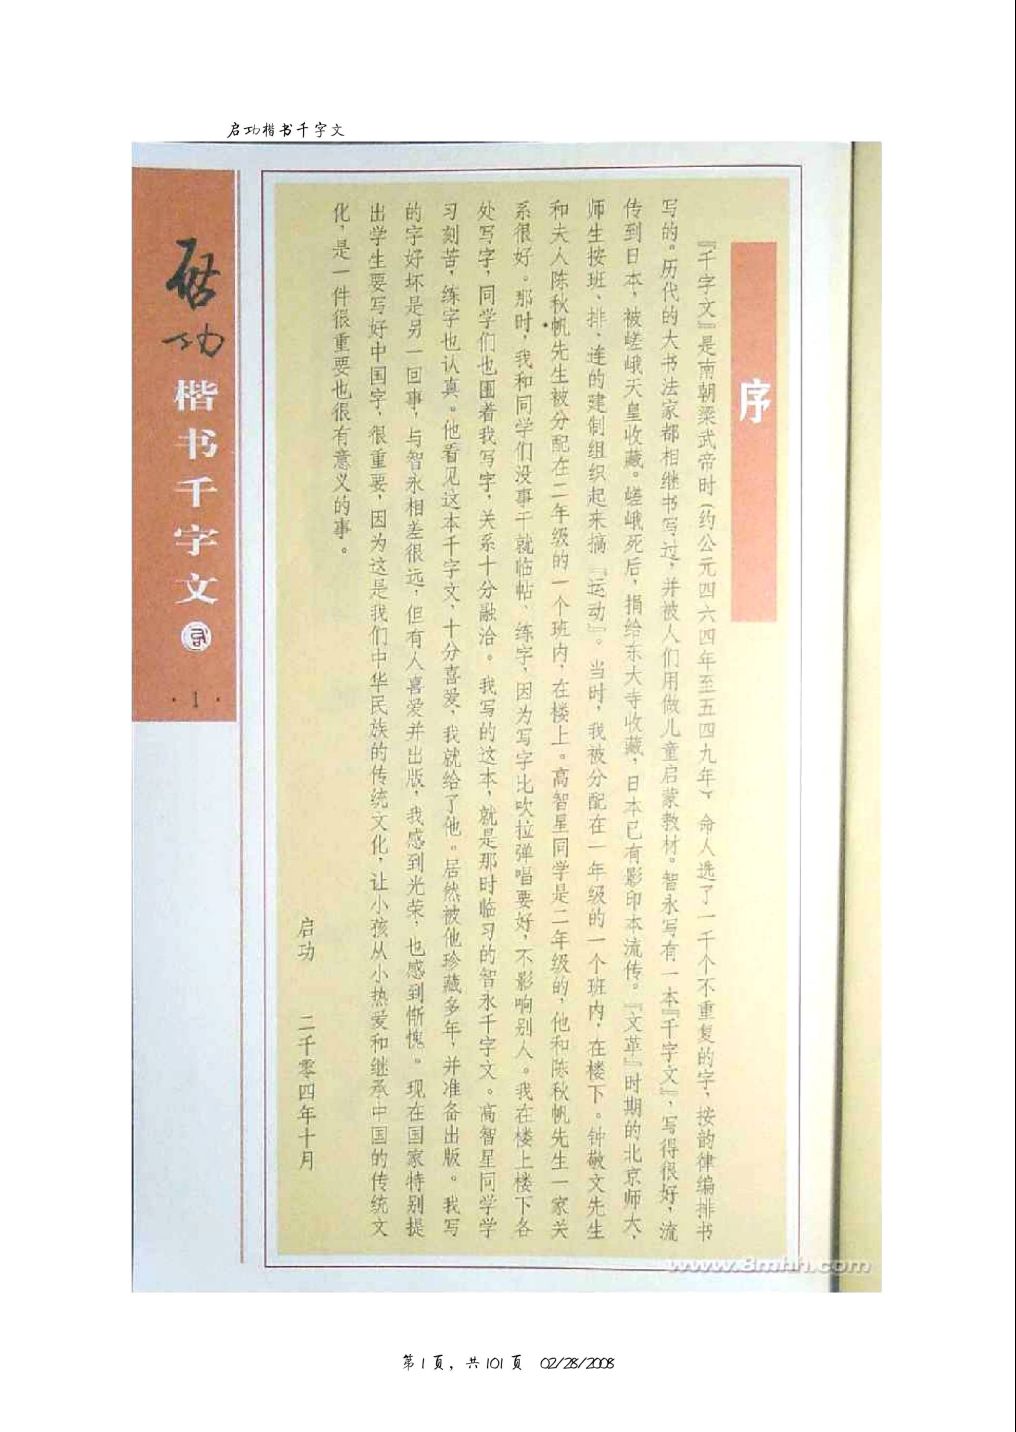 启功楷书千字文
序
『千字文』是南朝梁武帝时(约公元四六四年至五四九年)，命人选了一千个不重复的字，按韵律编排书
写的。历代的大书法家都相继书写过，并被人们用做儿童启蒙教材。智永写有一本『千字文』，写得很好，流
传到日本，被嵯峨天皇收藏。嵯峨死后，捐给东大寺收藏，日本已有影印本流传。『文革』时期的北京师大，
师生按班、排、连的建制组织起来搞『运动』。当时，我被分配在一年级的一个班内，在楼下。钟敬文先生
和夫人陈秋帆先生被分配在二年级的一个班内，在楼上。高智星同学是二年级的，他和陈秋帆先生一家关
系很好。那时，我和同学们没事干就临帖、练字，因为写字比吹拉弹唱要好，不影响别人。我在楼上楼下各
处写字，同学们也围着我写字，关系十分融洽。我写的这本，就是那时临习的智永千字文。高智星同学学
习刻苦，练字也认真。他看见这本千字文，十分喜爱，我就给了他。居然被他珍藏多年，并准备出版。我写
的字好坏是另一回事，与智永相差很远，但有人喜爱并出版，我感到光荣，也感到惭愧。现在国家特别提
出学生要写好中国字，很重要，因为这是我们中华民族的传统文化，让小孩从小热爱和继承中国的传统文
化，是一件很重要也很有意义的事。
启功 二千零四年十月
启功楷书千字文
·1·
www.8mhh.com
第1页，共101页 02/28/2008